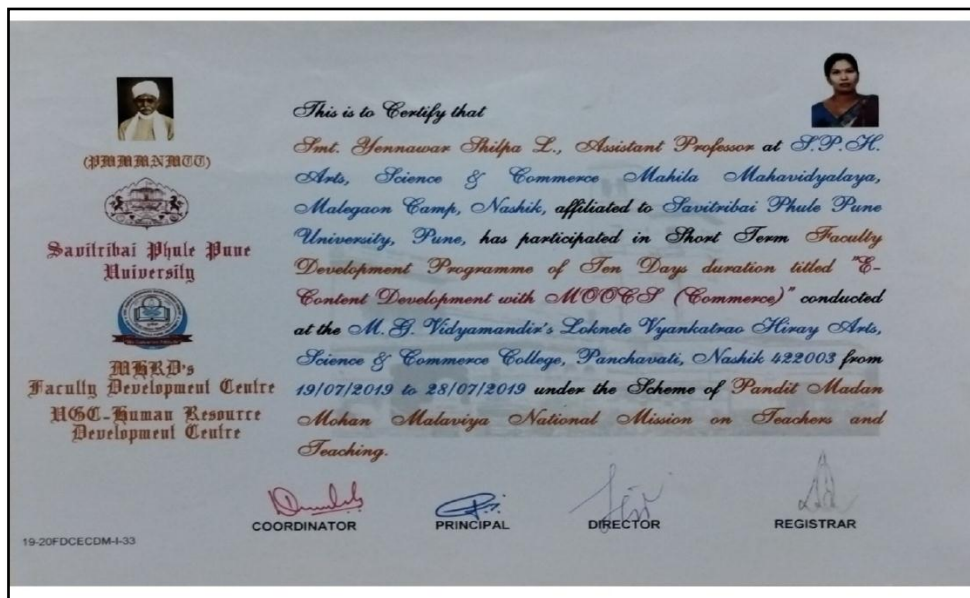 (PMMMNMTT)
Savitribai Phule Pune
University
MHRD's
Faculty Development Centre
UGC-Human Resource
Development Centre
This is to Certify that
Smt. Yennawar Shilpa L., Assistant Professor at S.P.H.
Arts, Science & Commerce Mahila Mahavidyalaya,
Malegaon Camp, Nashik, affiliated to Savitribai Phule Pune
University, Pune, has participated in Short Term Faculty
Development Programme of Ten Days duration titled "E-
Content Development with MOOCS (Commerce)" conducted
at the M. G. Vidyamandir's Loknete Vyankatrao Hiray Arts,
Science & Commerce College, Panchavati, Nashik 422003 from
19/07/2019 to 28/07/2019 under the Scheme of Pandit Madan
Mohan Malaviya National Mission on Teachers and
Teaching.
COORDINATOR
PRINCIPAL
DIRECTOR
REGISTRAR
19-20FDCECDM-I-33